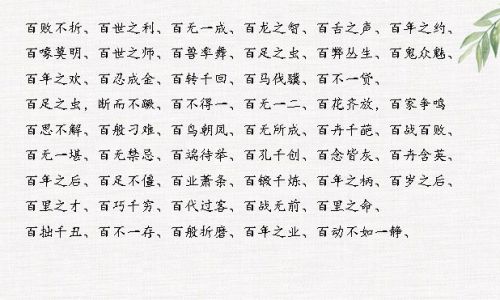 百败不折、百世之利、百无一成、百龙之智、百舌之声、百年之约、
百喙莫明、百世之师、百兽率舞、百足之虫、百弊丛生、百鬼众魅、
百年之欢、百忍成金、百转千回、百马伐骥、百不一贷、
百足之虫，断而不蹶、百不得一、百无一二、百花齐放，百家争鸣
百思不解、百般刁难、百鸟朝凤、百无所成、百卉千葩、百战百败、
百无一堪、百无禁忌、百端待举、百孔千创、百念皆灰、百卉含英、
百年之后、百足不僵、百业萧条、百锻千炼、百年之柄、百岁之后、
百里之才、百巧千穷、百代过客、百战无前、百里之命、
百拙千丑、百不一存、百般折磨、百年之业、百动不如一静、